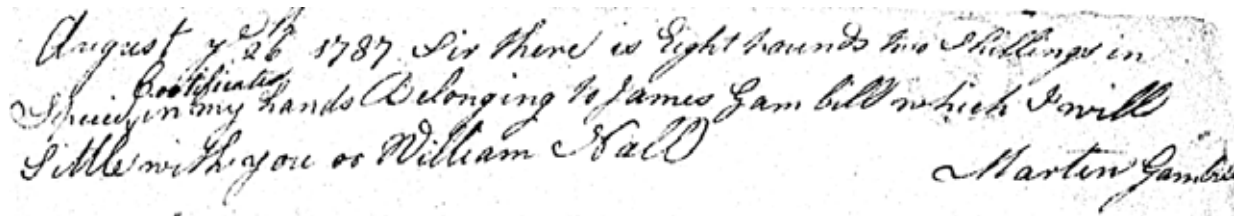 August ye 26th 1787 Sir there is Eight Pounds two Shillings in
Certificates
Specie in my hands Belonging to James Gambill which I will
Sittle with you or William Nall
Martin Gambill